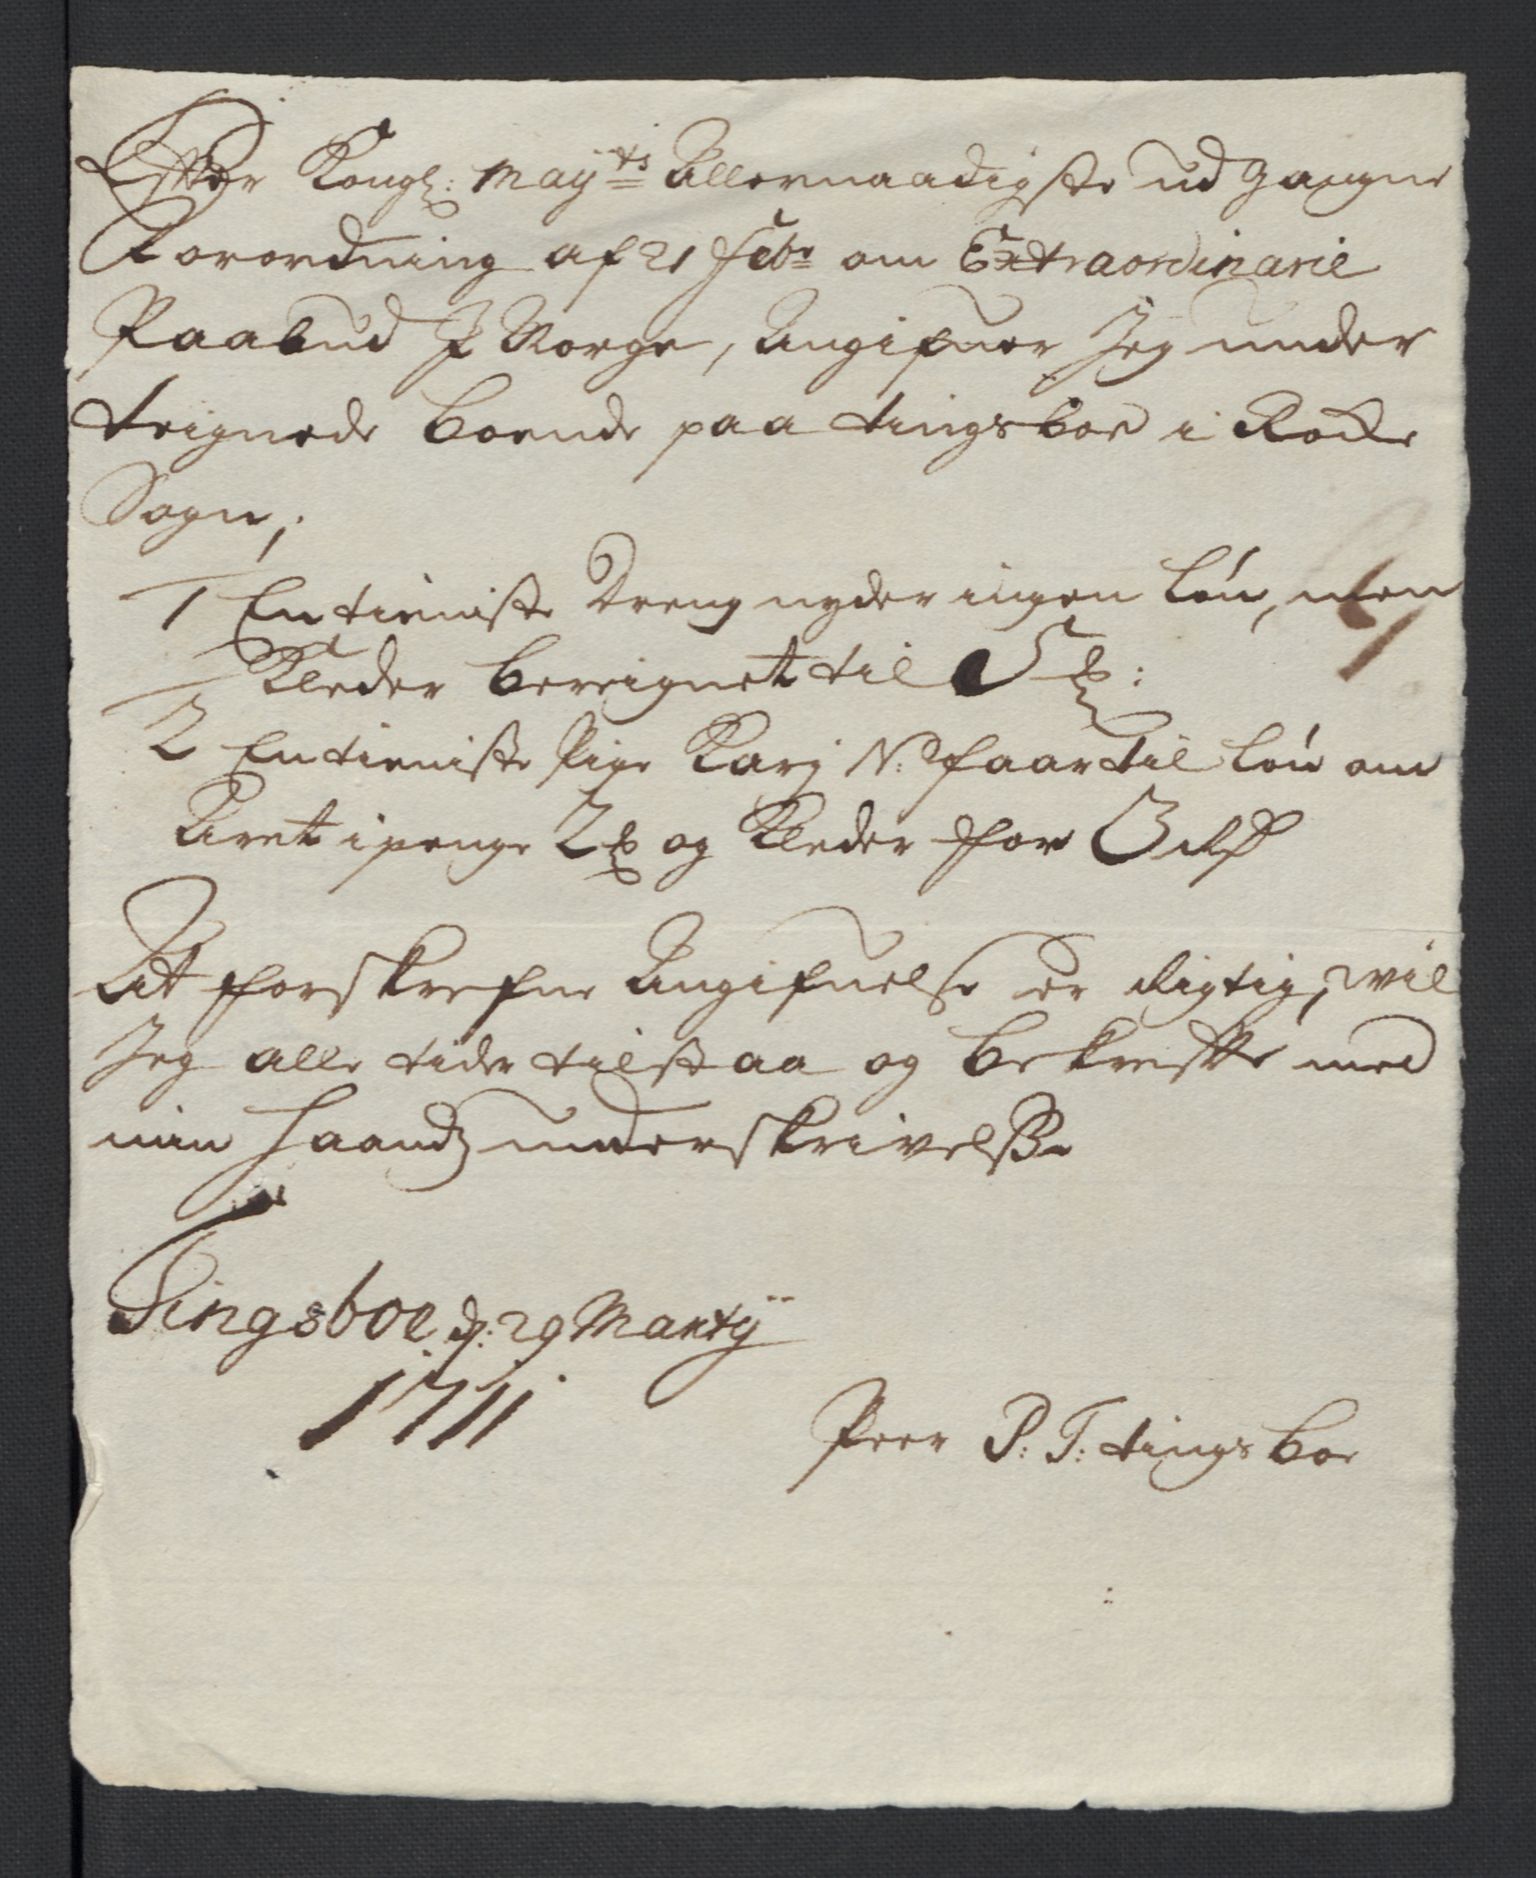 Effter Kongl: Maÿts Allernaadigste ud gangne
Forordning af 21 Febr om Extraordinarie
Paabud I Norge, Angifuer Jeg under
teignede boende paa tingsboe i Rocke
Sogn,
1 En tieniste Dreng nyder ingen løn, men
Kleder bereignet til 5
2 En tieniste Pige Karj N: faar til løn om
Aret i penge 2 og Kleder for 3
At forskrefne Angifuelse er Rigtig, wil
Jeg alle tider tilstaa og bekrefte med
min Haands underskrivelsse
Tingsboe d: 29 Martÿ
1711
Peer P: T: tingsboe